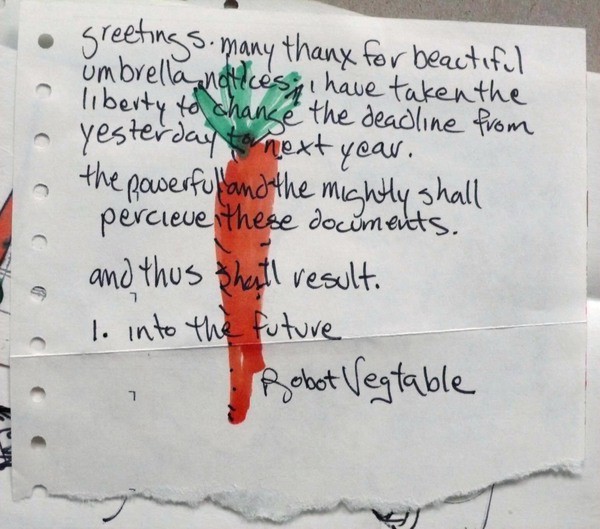 greetings. many thanx for beautiful
umbrella notices; i have taken the
liberty to change the deadline from
yesterday to next year.
the powerful and the mightly shall
percieve these documents.
and thus shall result.
1. into the future
Robot Vegtable